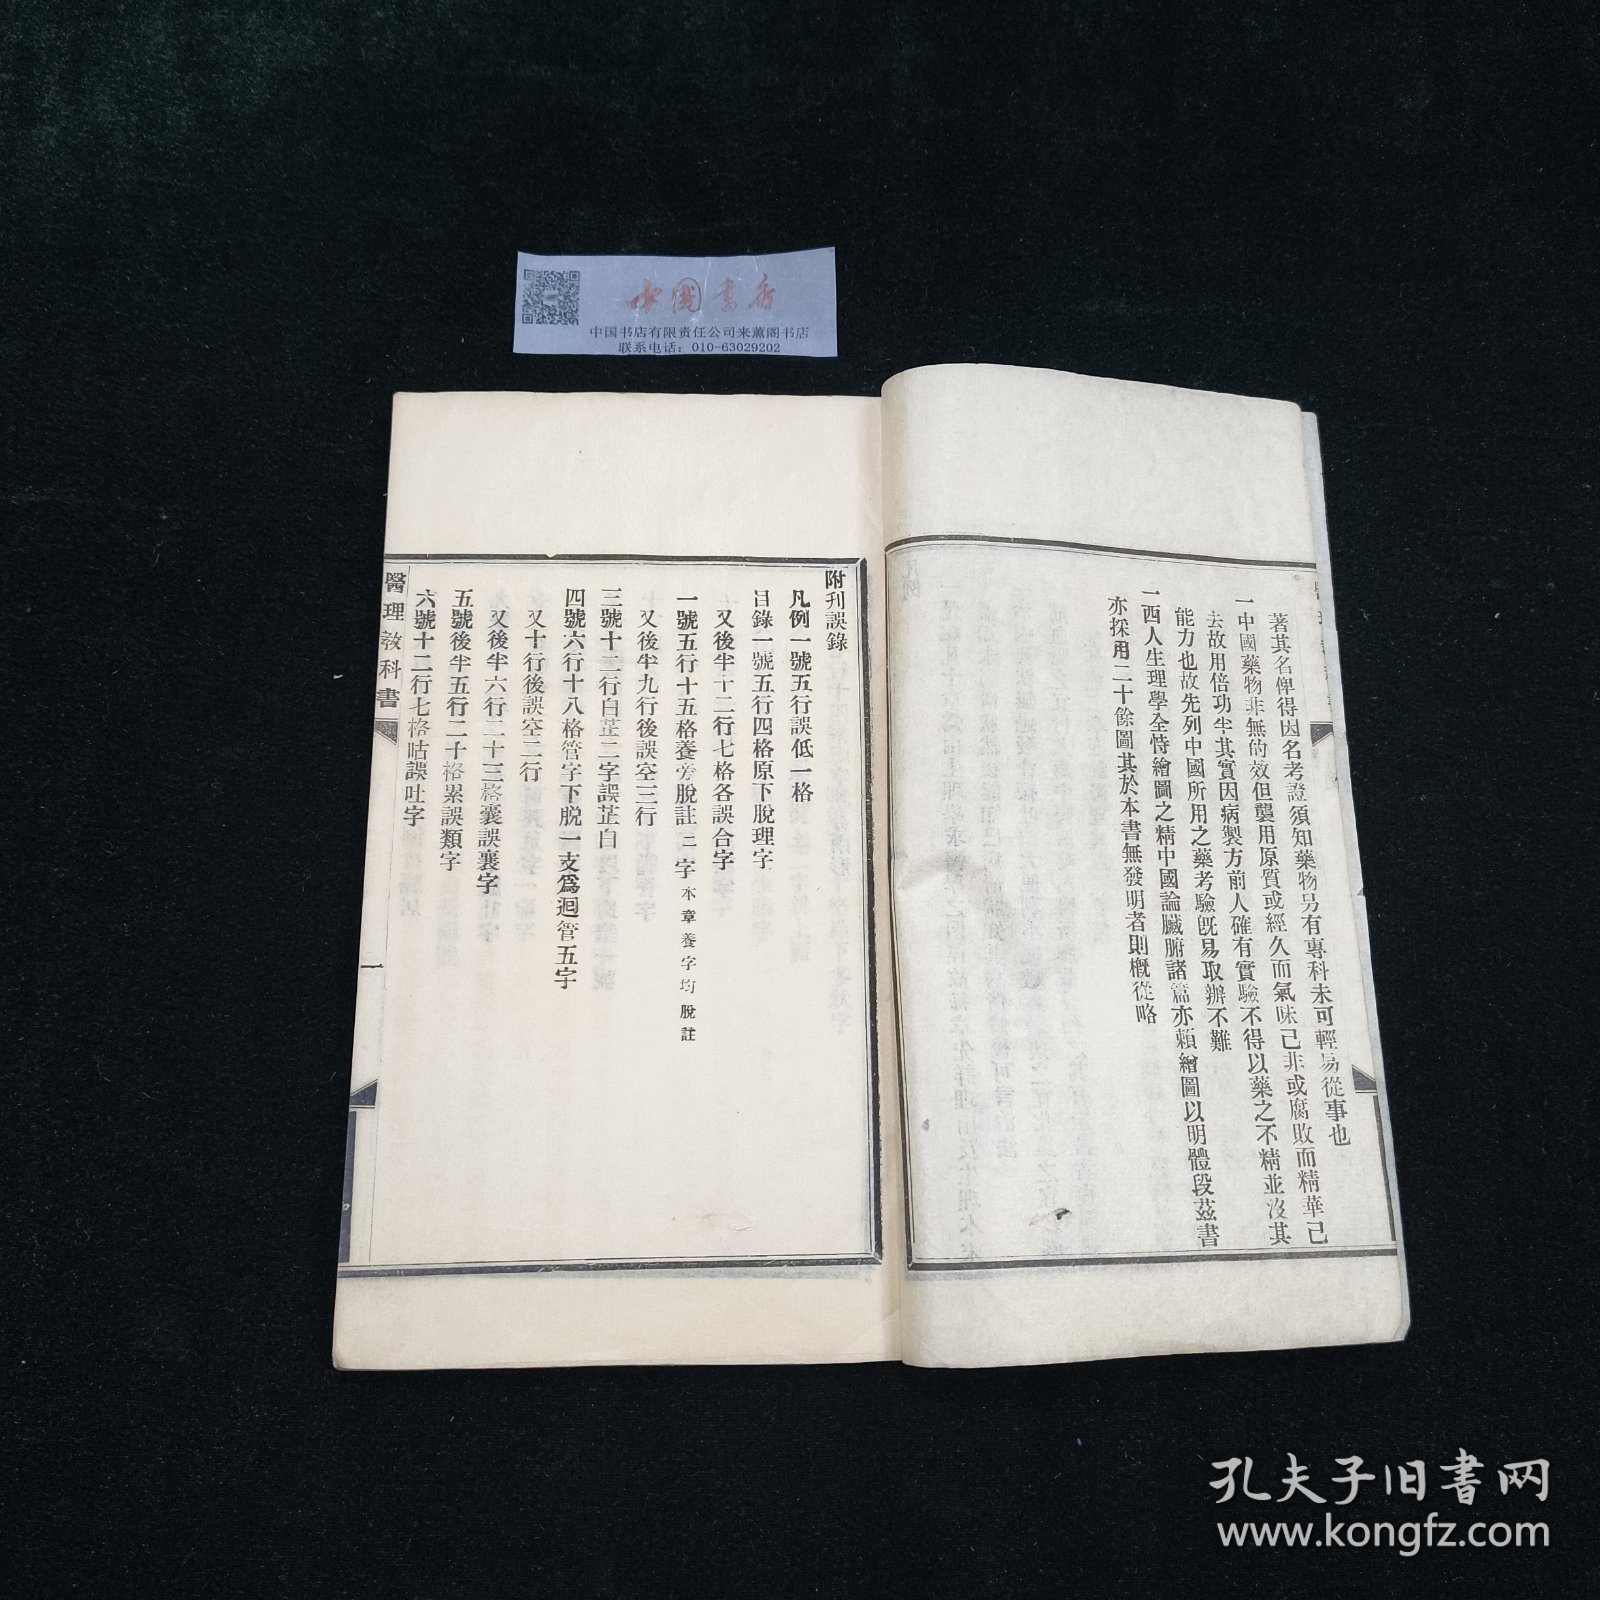 中國書店
中国书店有限责任公司来薰阁书店
联系电话：010-63029202
著其名俾得因名考證須知藥物另有專科未可輕易從事也
一中國藥物非無的效但襲用原質或經久而氣味已非或腐敗而精華已
去故用倍功半其實因病製方前人確有實驗不得以藥之不精並沒其
能力也故先列中國所用之藥考驗既易取辦不難
一西人生理學全恃繪圖之精中國論臟腑諸篇亦賴繪圖以明體段茲書
亦採用二十餘圖其於本書無發明者則概從略
附刊誤錄
凡例一號五行誤低一格
目錄一號五行四格原下脫理字
又後半十二行七格各誤合字
一號五行十五格養旁脫註二字本章養字均脫註
又後半九行後誤空三行
三號十二行白芷二字誤芷白
四號六行十八格管字下脫一支爲迴管五字
又十行後誤空二行
又後半六行二十三格囊誤襄字
五號後半五行二十格累誤類字
六號十二行七格咕誤吐字
醫理教科書
一
孔夫子旧书网
www.kongfz.com